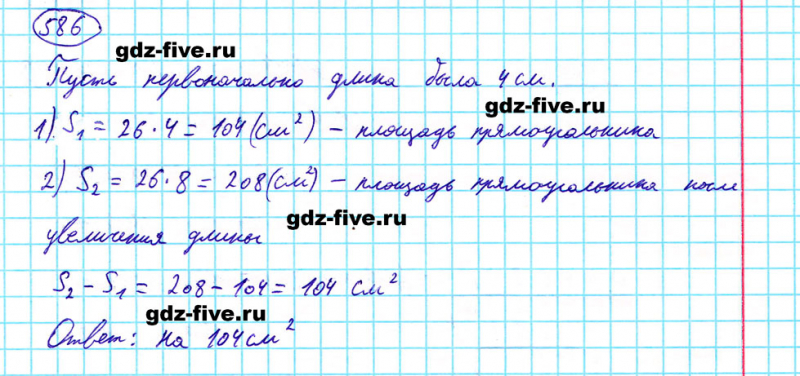 586
gdz-five.ru
Пусть первоначально длина была 4 см.
gdz-five.ru
1) S₁ = 26 · 4 = 104 (см²) – площадь прямоугольника
2) S₂ = 26 · 8 = 208 (см²) – площадь прямоугольника после
gdz-five.ru
увеличения длины
S₂ – S₁ = 208 – 104 = 104 см²
gdz-five.ru
Ответ: на 104 см²